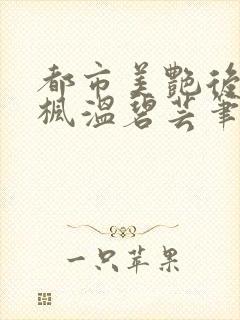 都市美艷後
楓溫碧芸筆
一只苹果